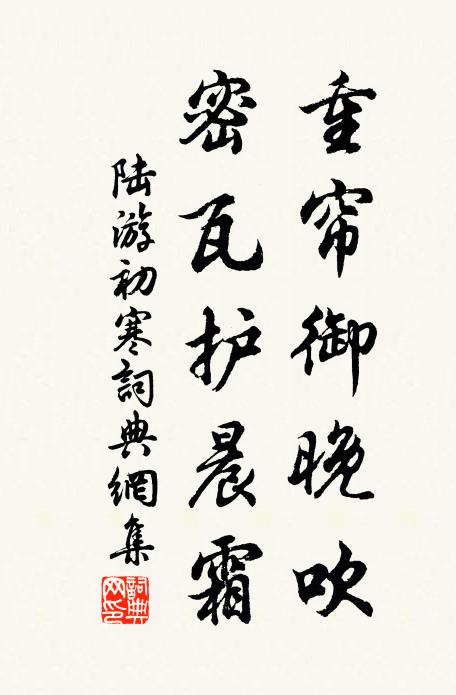 重帘御晚吹
密瓦护晨霜
陆游初寒詞典網集
詞典网印